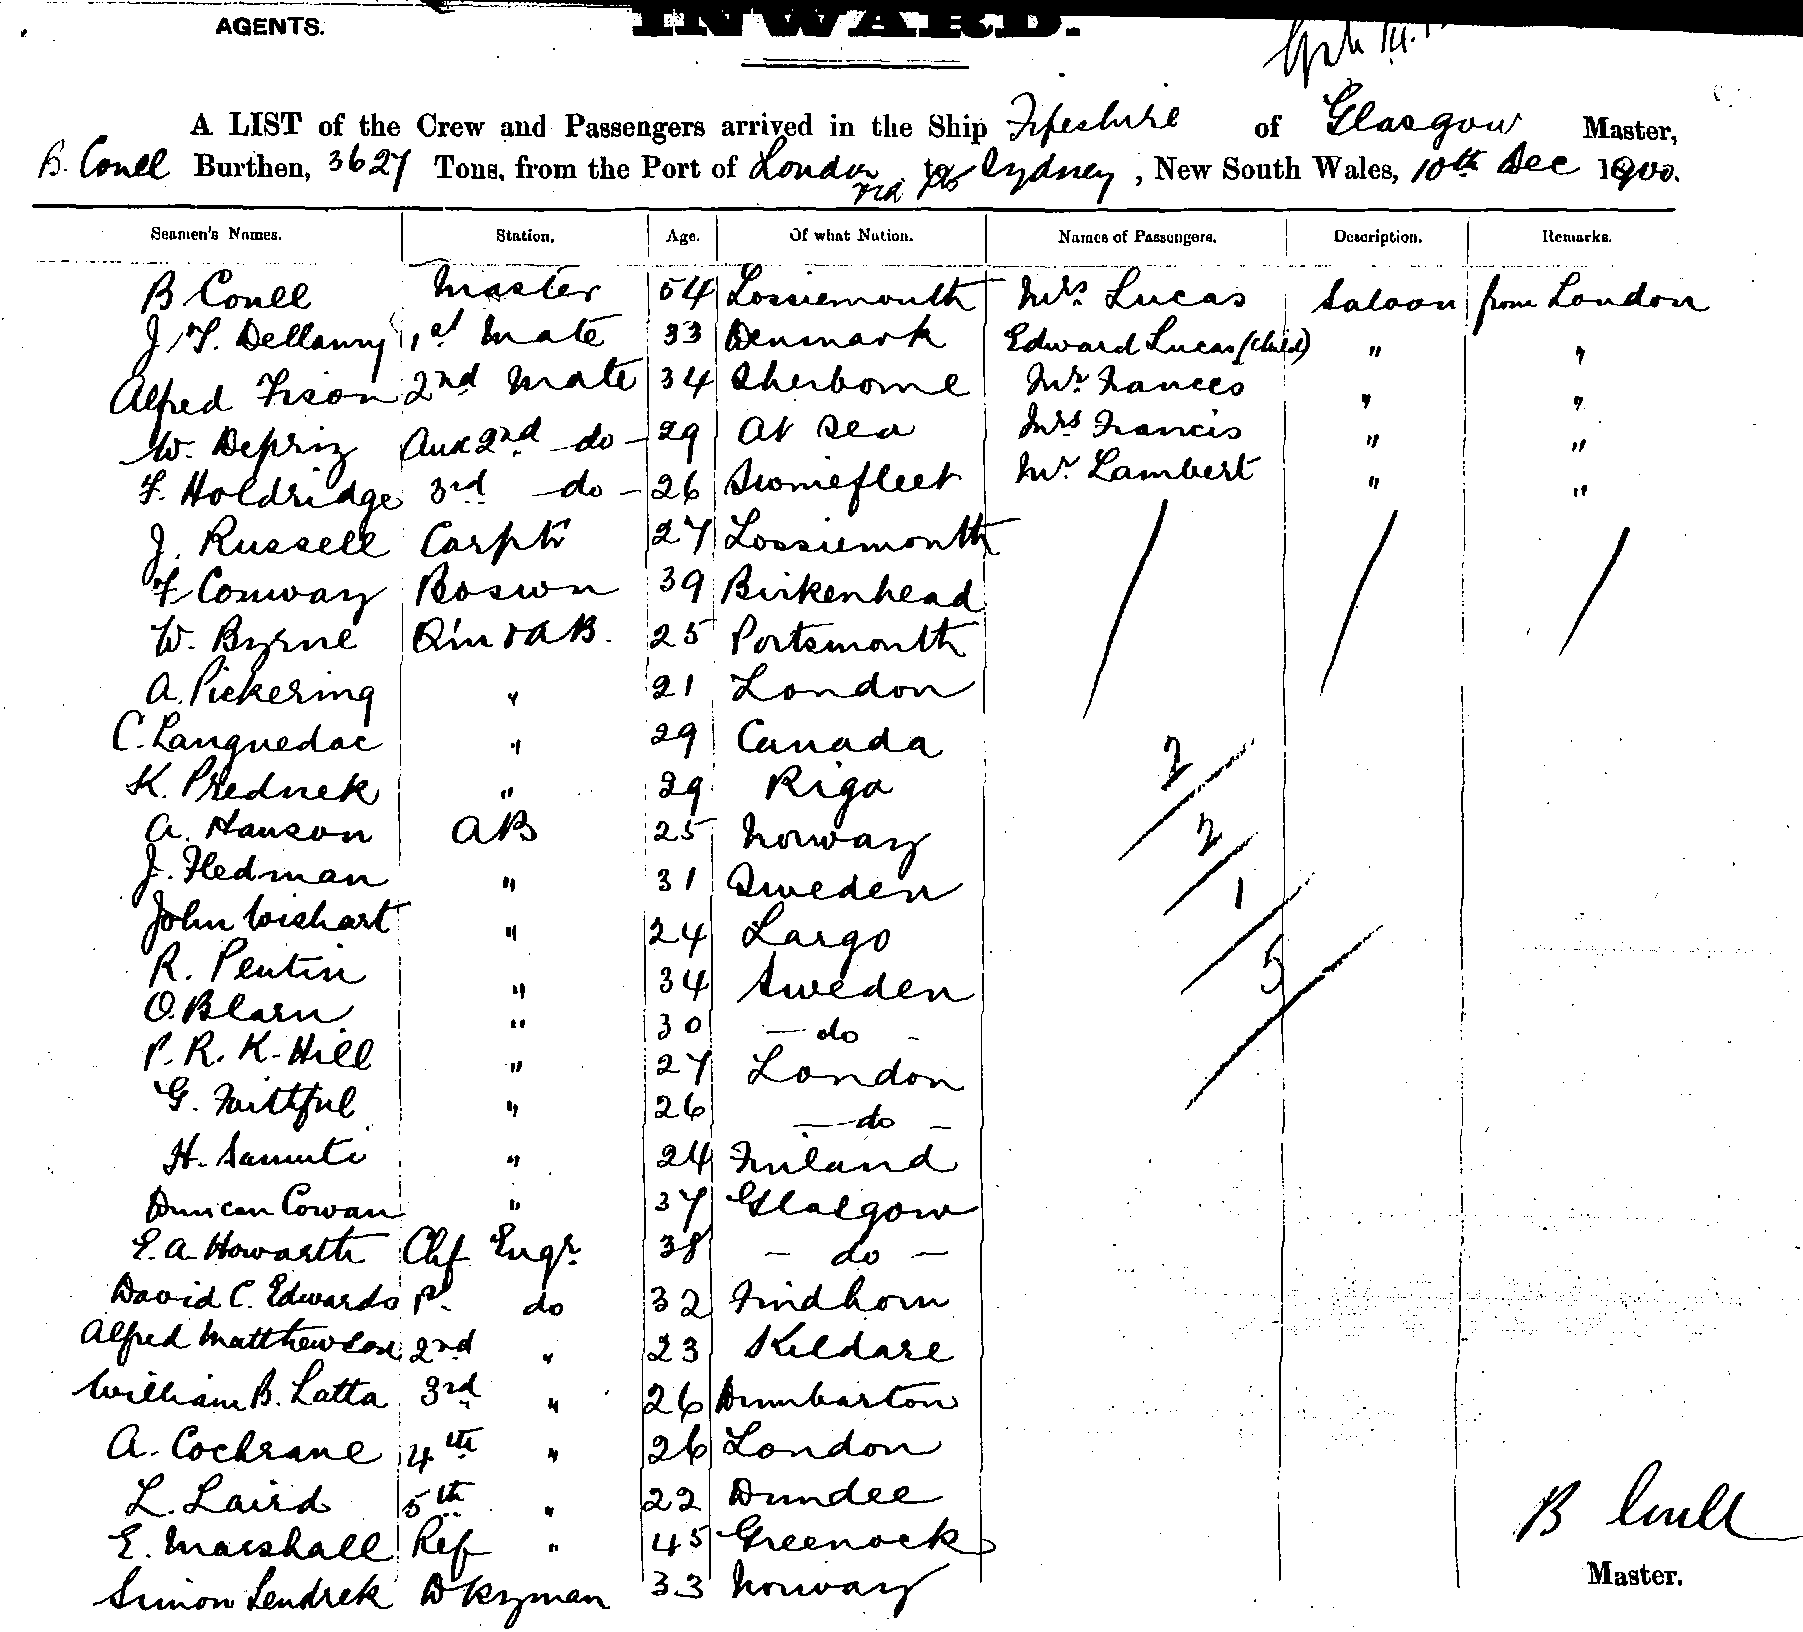 AGENTS.
INWARD.
A LIST of the Crew and Passengers arrived in the Ship Fifeshire of Glasgow Master,
B. Conell Burthen, 3627 Tons, from the Port of London via to Sydney, New South Wales, 10th Dec 1900.
Seamen's Names. Station. Age. Of what Nation. Names of Passengers. Description. Remarks.
B Conell Master 54 Lossiemouth Mrs Lucas Saloon from London
J. F. Dellanny 1st Mate 33 Denmark Edward Lucas (Child) " "
Alfred Fison 2nd Mate 34 Sherborne Mr Frances " "
W. Depriz Aux 2nd do 29 At Sea Mrs Francis " "
F. Holdridge 3rd do 26 Swinefleet Mr Lambert " "
J. Russell Carptr 27 Lossiemouth
F Conway Boswn 39 Birkenhead
W. Byrne AB. 25 Portsmouth
A. Pickering " 21 London
C. Languedoc " 29 Canada
K. Prednek " 29 Riga 2
A. Hanson AB 25 Norway 2
J. Hedman " 31 Sweden 1
John Wishart " 24 Largo
R. Pentin " 34 Sweden 5
O. Blarn " 30 do
P. R. K. Hill " 27 London
G. Faithful " 26 do
H. Samuti " 24 Finland
Duncan Cowan " 37 Glasgow
E. A. Howarth Chf Engr. 38 do
David C. Edwards do 32 Findhorn
Alfred Matthewson 2nd " 23 Kildare
William B. Latta 3rd " 26 Dumbarton
A. Cochrane 4th " 26 London
L. Laird 5th " 22 Dundee
E. Marshall Ref " 45 Greenock
Simon Sendrek Dkyman 33 Norway
B Conell
Master.